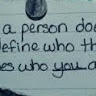 a person doe
define who th
es who you a